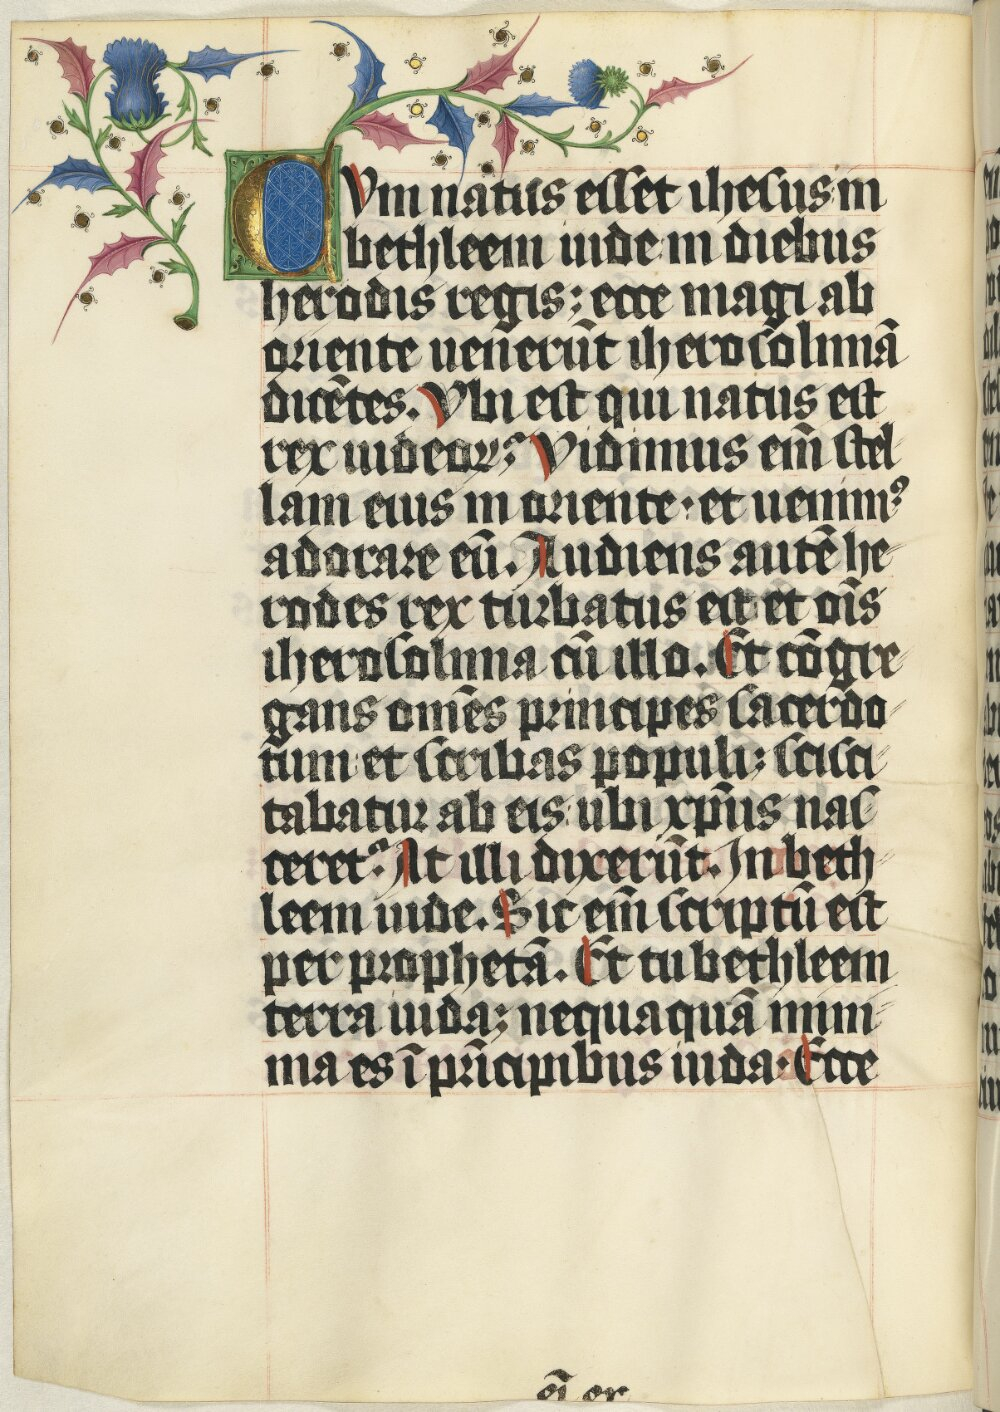 CVm natus esset ihesus in
bethleem iude in diebus
herodis regis; ecce magi ab
oriente uenerūt iherosolimā
dicētes. Vbi est qui natus est
rex iudeoꝝ? Vidimus em̄ stel
lam eius in oriente· et uenimꝰ
adorare eū. Audiens autē he-
rodes rex turbatus est et om̄s
iherosolima cū illo. Et cōgre-
gans om̄es principes sacerdo-
tum et scribas populi; scisci-
tabatur ab eis ubi xp̄us nas
ceret᷑? At illi dixerūt. In beth-
leem iude. Sic em̄ scriptū est
per prophetā. Et tu bethleem
terra iuda; nequaquā mini-
ma es ī pri̅cipibus iuda· Ecce